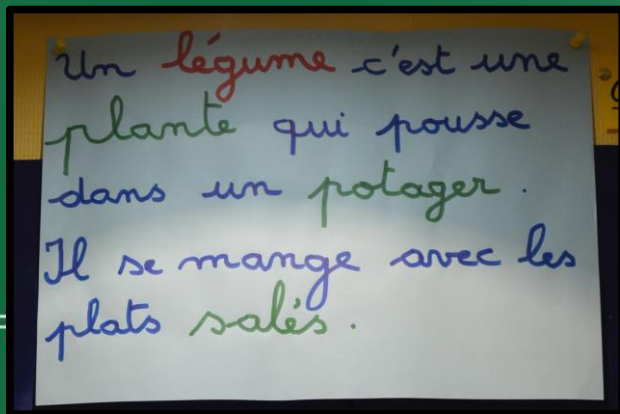 Un légume c'est une
plante qui pousse
dans un potager.
Il se mange avec les
plats salés.